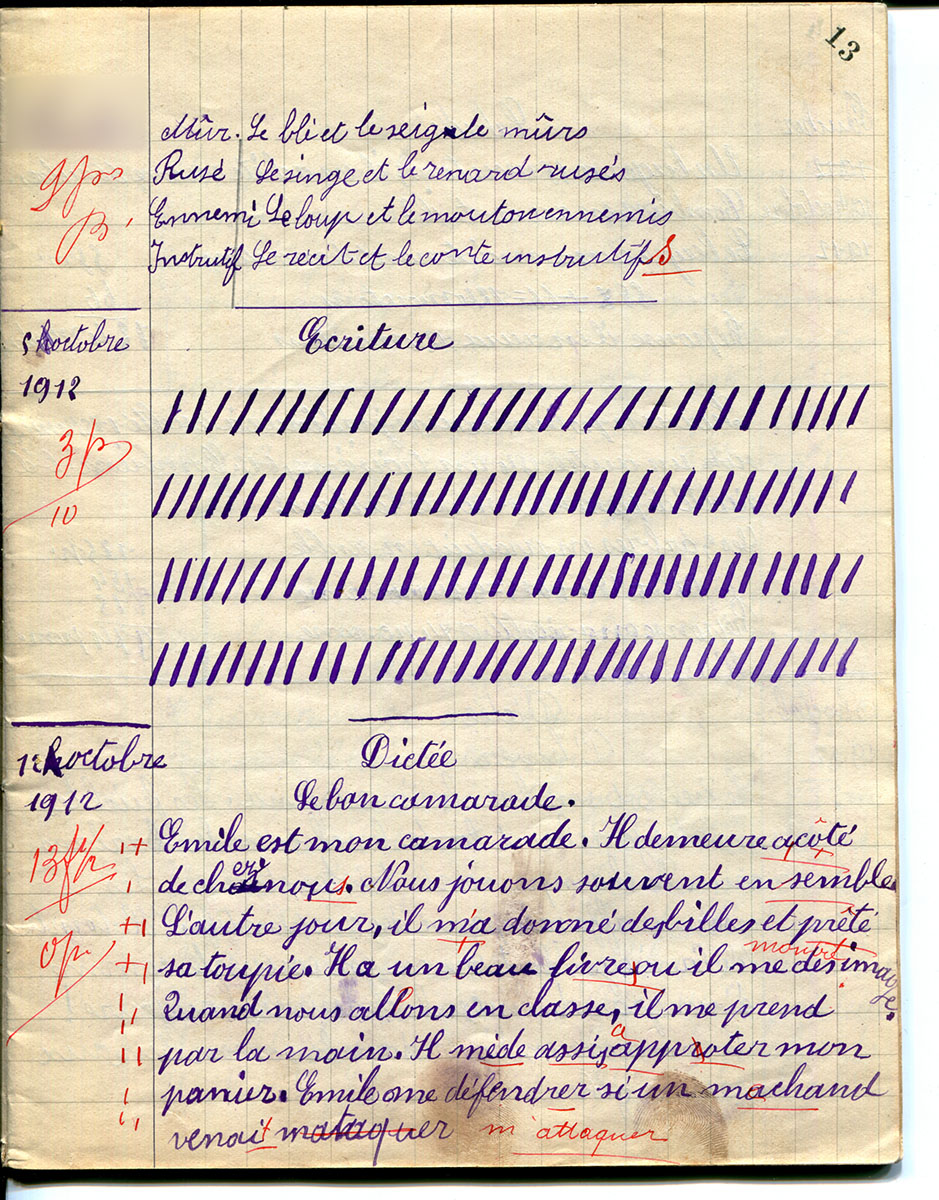 13
Mûr. Le blé et le seigle mûrs
9 ps
Rusé Le singe et le renard rusés
Ennemi Le loup et le mouton ennemis
Instrutif Le récit et le conte instrutifs
5 octobre
1912
Ecriture
3 p
10
12 octobre
1912
Dictée
Le bon camarade.
Emile est mon camarade. Il demeure a côté
13 f 1/2
de cheri nous. Nous jouons souvent en semble
L'autre jour, il m'a donné des billes et prêté
0 p
montre
sa toupie. Il a un beau livre ou il me des image.
Quand nous allons en classe, il me prend
par la main. Il mède assi a approter mon
panier. Emile me défendrer si un machand
venait mataquer m'attaquer